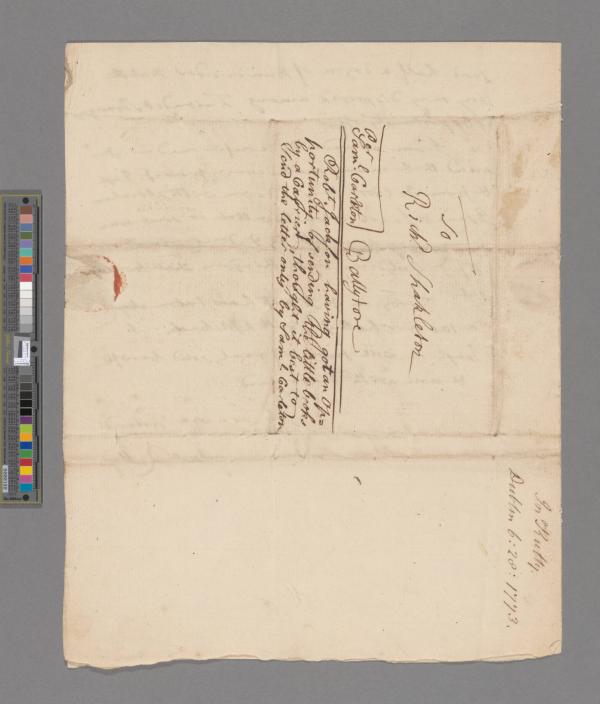 To
Richd. Shakleton
Ballytore
per
Saml. Carleton
Robt. Jackson having got an Op=
portunity of sending the little books
by a Carrier thought it best to
send the letter only by Saml. Carleton
Jn. Rutty
Dublin 6: 20: 1773.